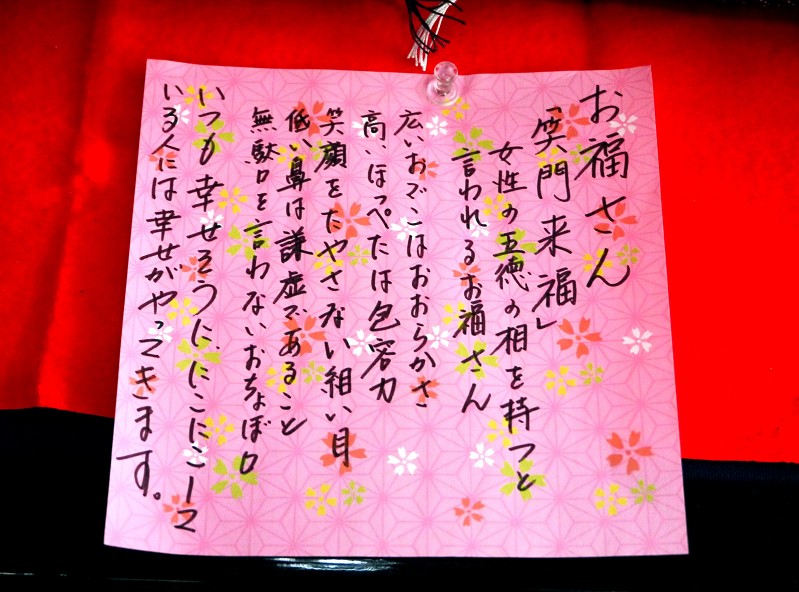 お福さん
「笑門来福」
女性の五徳の相を持つと
言われるお福さん
広いおでこはおおらかさ
高いほっぺたは包容力
笑顔をたやさない細い目
低い鼻は謙虚であること
無駄口を言わないおちょぼ口
いつも幸せそうに、にこにこして
いる人には幸せがやってきます。